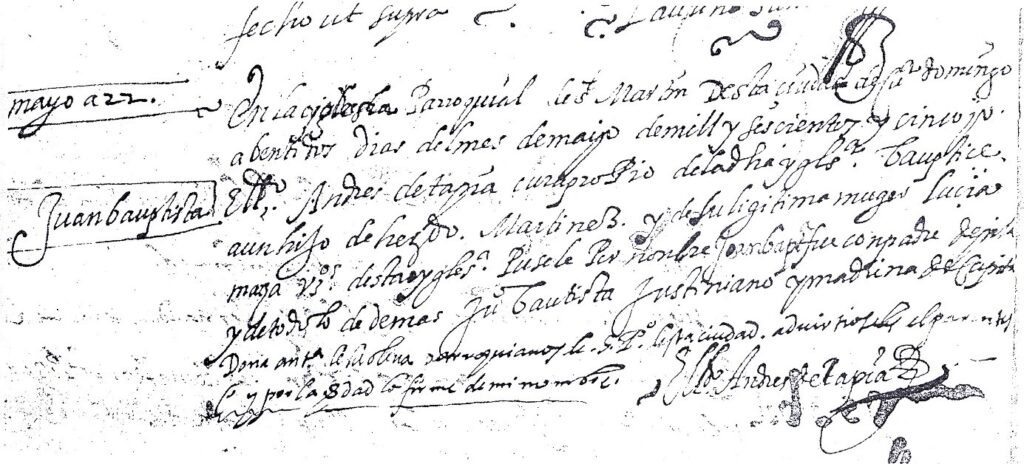 fecho ut supra
mayo a 22.
En la iglesia Parroquial de st Martin Desta ciudad de st domingo
a bentidos dias del mes de mayo de mill y sescientos y cinco yo
Juan bauptista
Ell.do Andres de tapia cura proPio de la dha ygles.a bauptice
a un hijo de her.do Martinez. y de su ligitima muger lucia
maya vs.os desta ygles.a Pusele Por nonbre Joan bapt fue conpadre de pila
y de todo lo demas Ju.o bautista Justiniano y madrina
Doña ant.a parroquianos desta ciudad. advirtioseles el parentes
co y por la verdad lo firme de mi nombre.
Ell.do Andres de tapia